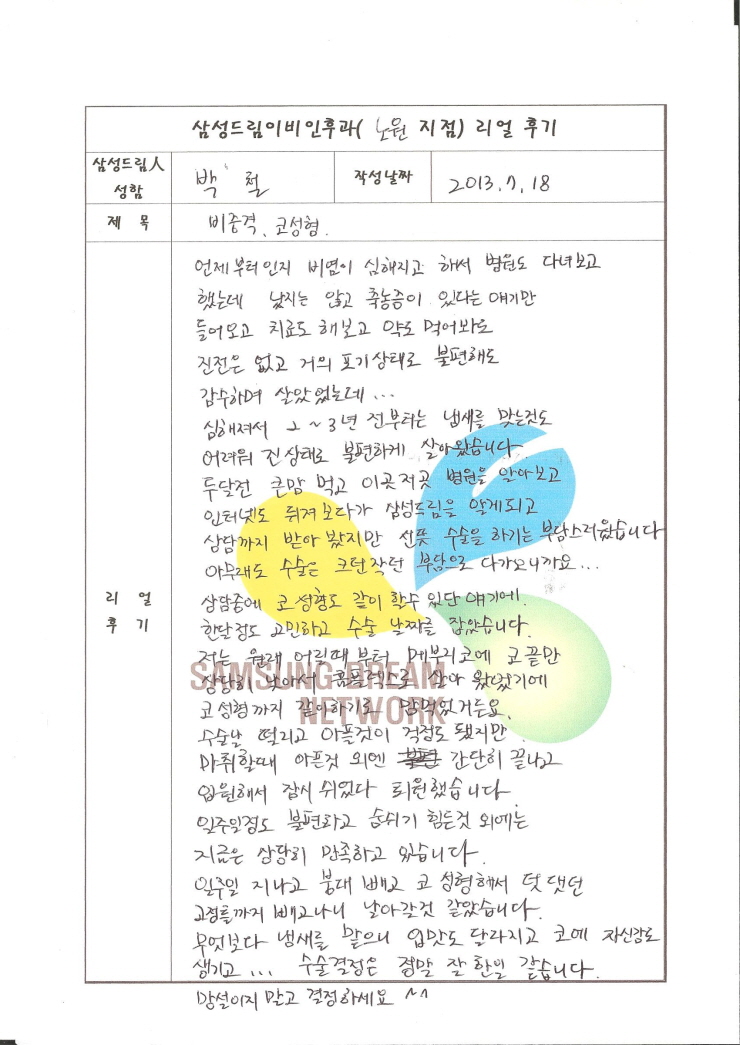 삼성드림이비인후과( 노원 지점) 리얼 후기
삼성드림人 성함
박 철
작성날짜
2013. 7. 18
제 목
비중격、코성형.
리 얼 후 기
언제부터인지 비염이 심해지고 해서 병원도 다녀보고
했는데 낫지는 않고 축농증이 있다는 얘기만
들어오고 치료도 해보고 약도 먹어봐도
진전은 없고 거의 포기상태로 불편해도
감수하며 살았었는데...
심해져서 2~3년 전부터는 냄새를 맞는것도
어려워 진상태로 불편하게 살아왔습니다.
두달전 큰맘 먹고 이곳저곳 병원을 알아보고
인터넷도 뒤져보다가 삼성드림을 알게되고
상담까지 받아 봤지만 선뜻 수술을 하기는 부담스러웠습니다
아무래도 수술은 크던작던 부담으로 다가오니까요...
상담중에 코성형도 같이 할수 있단 얘기에.
한달정도 고민하고 수술 날짜를 잡았습니다.
저는 원래 어릴때 부터 메부리코에 코끝만
상당히 낮아서 콤플렉스로 살아 왔었기에
코성형까지 같이하기로 맘먹었거든요.
수술날 떨리고 아플것이 걱정도 됐지만.
마취할때 아픈것 외엔 간단히 끝나고
입원해서 잠시 쉬었다 퇴원했습니다
일주일정도 불편하고 숨쉬기 힘든것 외에는
지금은 상당히 만족하고 있습니다.
일주일 지나고 붕대 빼고 코 성형해서 덧댔던
고정틀까지 빼고나니 날아갈것 같았습니다.
무엇보다 냄새를 맡으니 입맛도 달라지고 코에 자신감도
생기고... 수술결정은 정말 잘 한일 같습니다.
망설이지 말고 결정하세요 ^^
SAMSUNG DREAM
NETWORK